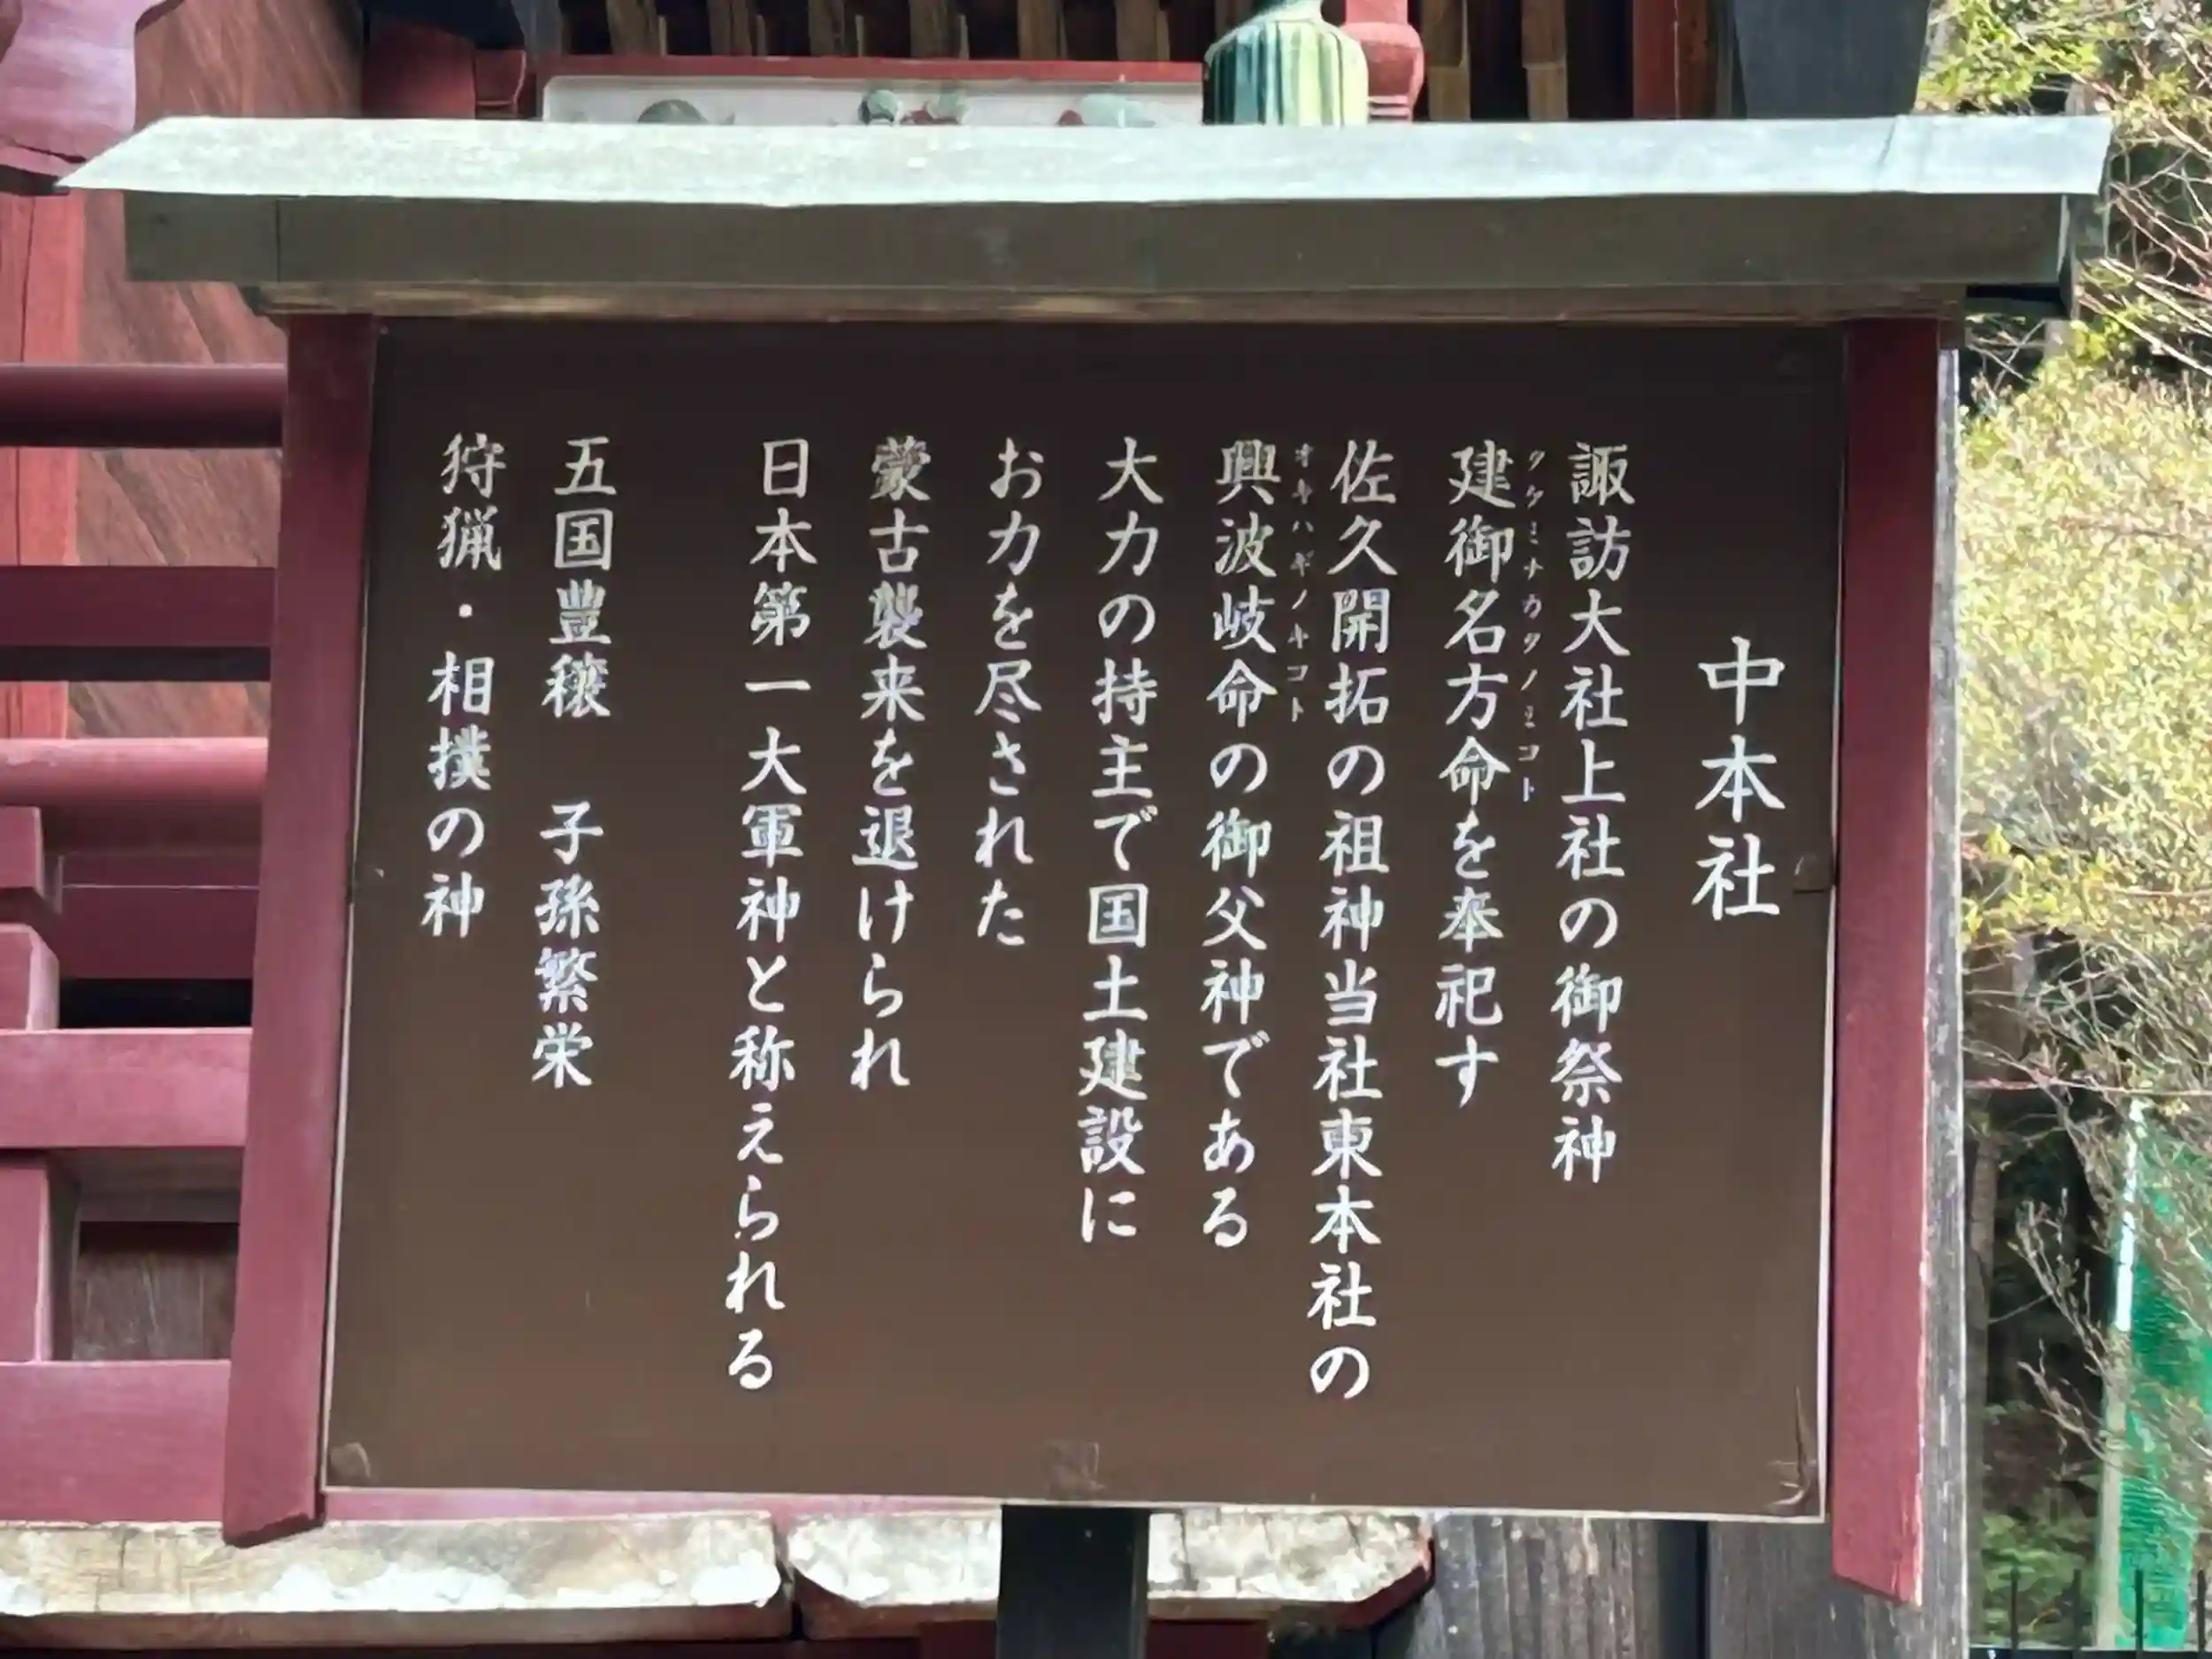 中本社
諏訪大社上社の御祭神
建御名方命を奉祀す
タケミナカタノミコト
佐久開拓の祖神当社東本社の
興波岐命の御父神である
オキハギノミコト
大力の持主で国土建設に
お力を尽された
蒙古襲来を退けられ
日本第一大軍神と称えられる
五国豊穣　子孫繁栄
狩猟・相撲の神